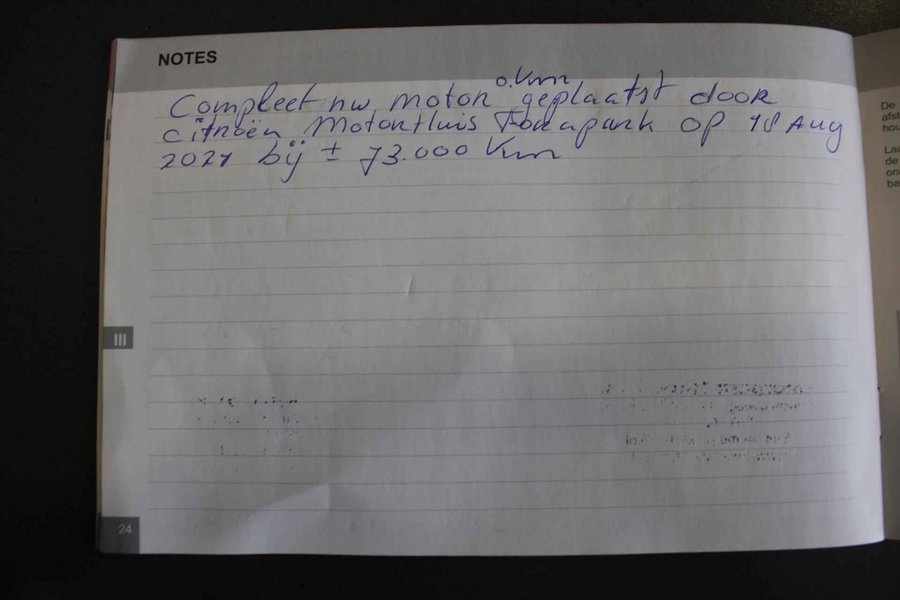 NOTES
0.km
Compleet nw motor geplaatst door
Citroën Motorhuis Forapark op 18 Aug
2021 bij ± 73.000 km
De
afst
hou
Laa
de
on
ba
III
24